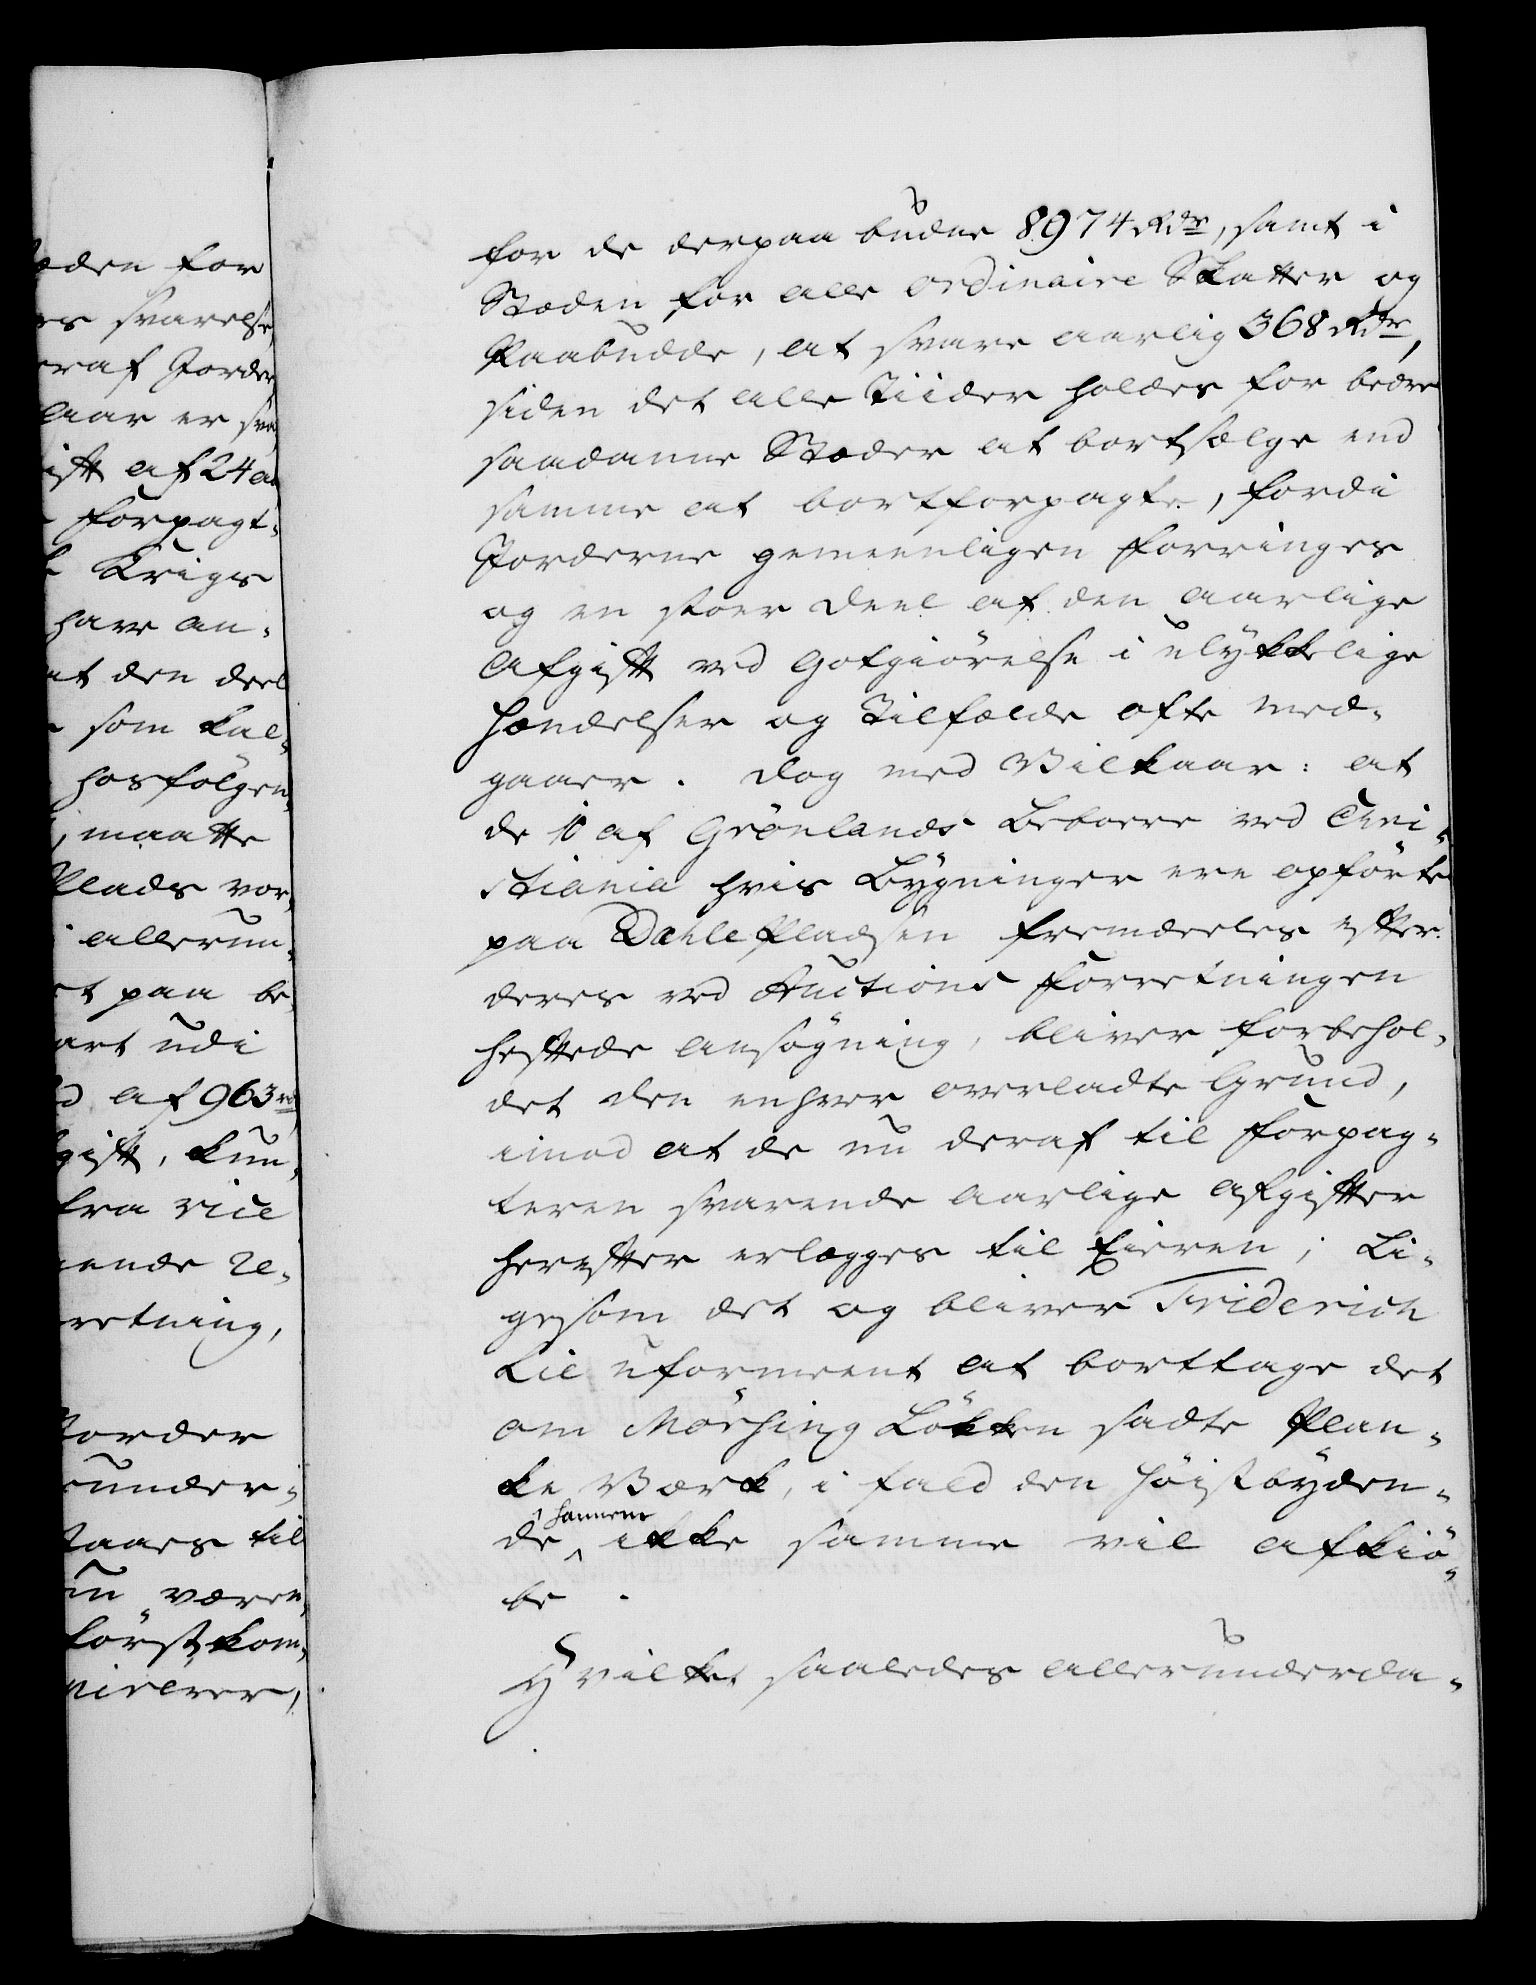 æden for
es svarelse
eraf Jorder
Aar er sva
ift af 24 a
forpagt-
Krigs
have an-
at den deel
som kal-
hosfølgen
maatte
Plads vor
allerun-
et paa be
art udi
af 963 rd
gift, kun-
fra vice
ende Re-
retning,
Jorder
under-
taaes til
un væren
først kom-
for de derpaa budne 8974 Rdr, samt i
Stæden for alle ordinaire Skatter og
Paabudde, at svare aarlig 368 Rdr,
siden det alle Tiider holdes for bedre
saadanne Stæder at bortsælge end
samme at bortforpagte, fordi
Jorderne gemeenligen forringes
og en stoer Deel af den aarlige
Afgift ved Godgiörelse i ulykkelige
Hændelser og Tilfælde ofte med-
gaaer. Dog med Vilkaar: at
de 10 af Grönlands Beboere ved Chri-
stiania hvis Bygninger ere opförte
paa Dahle Pladsen fremdeeles efter
deres ved Auctions Forretningen
heftede Ansögning, bliver forbehol-
det den enhver overladte Grund,
imod at de nu deraf til Forpag-
teren svarende aarlige Afgifter
herefter erlægges til Eieren; Li-
gesom det og bliver Friderich
Lie uformeent at borttage det
om Mörsing Lökken sadte Plan-
ke Værk, i fald den Höistbyden-
de hannem ikke samme vil afkiö-
be.
Hvilket saaledes allerunderda-